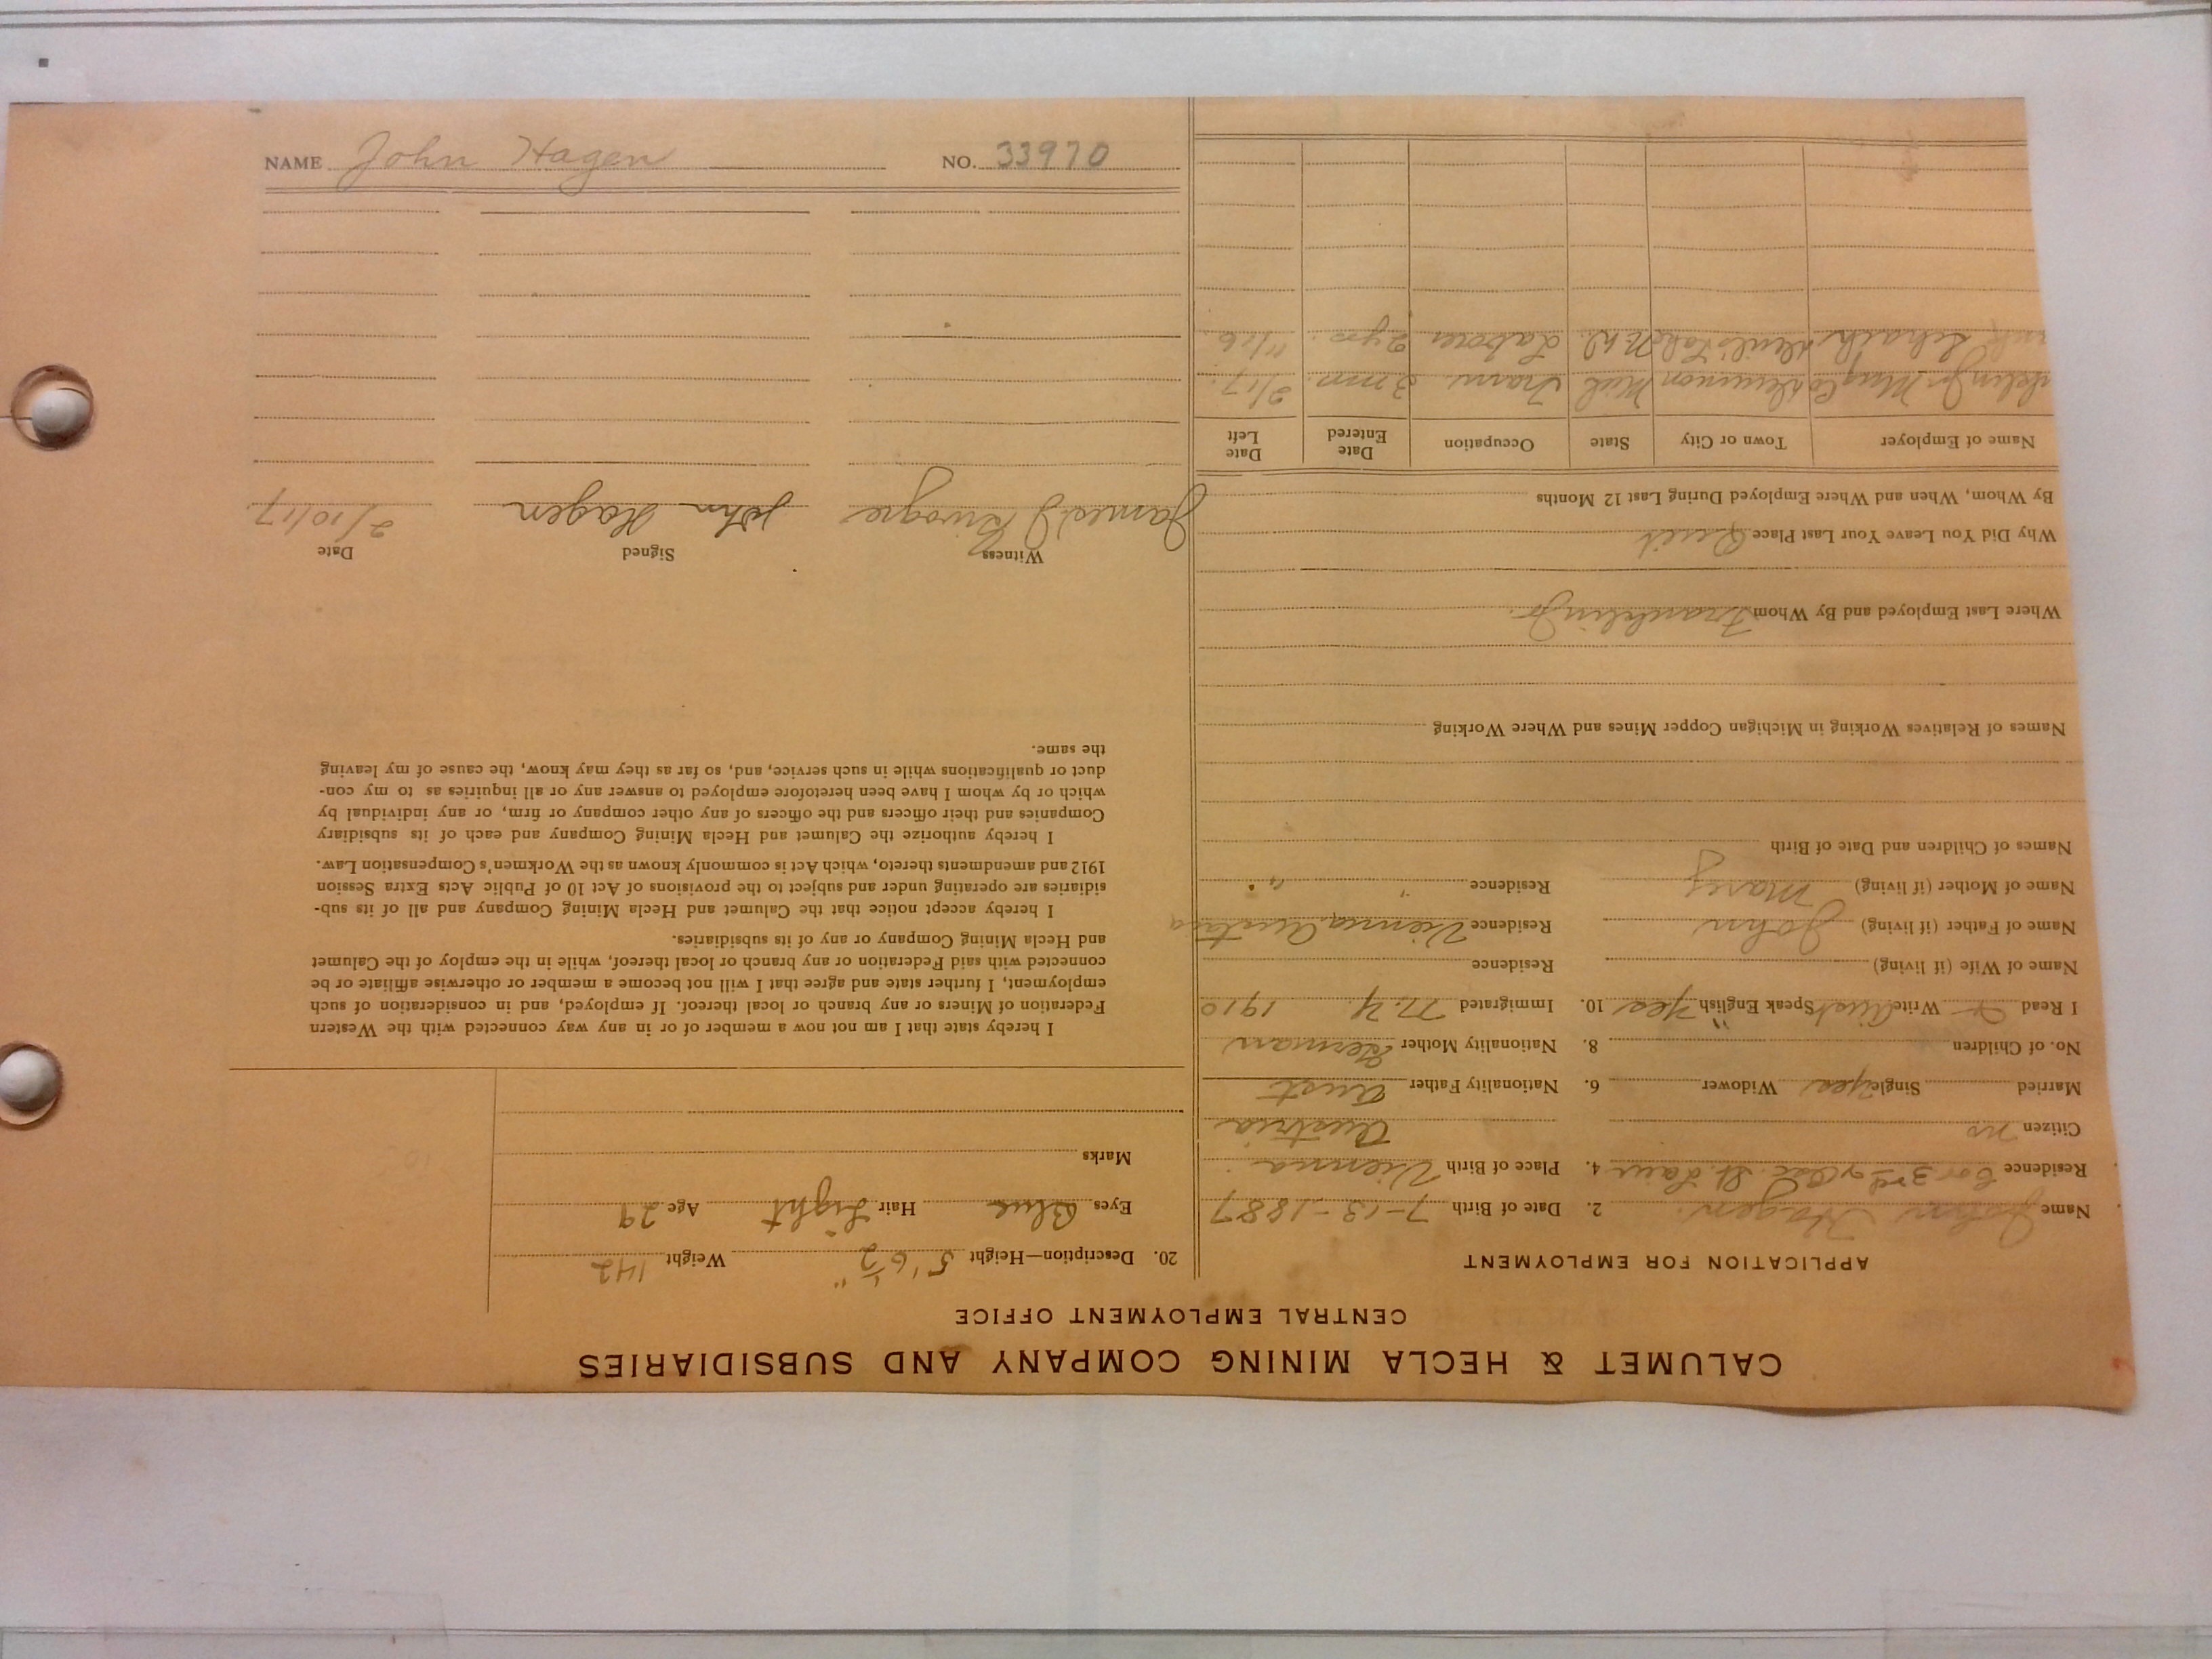 CALUMET & HECLA MINING COMPANY AND SUBSIDIARIES
CENTRAL EMPLOYMENT OFFICE
APPLICATION FOR EMPLOYMENT
Name John Hagen. 2. Date of Birth 7-13-1887
Residence Cor 3rd & St. 4. Place of Birth Vienna
Citizen no Austria
Married Single yes Widower 6. Nationality Father Aust
No. of Children 8. Nationality Mother German
I Read Write Aust Speak English yes 10. Immigrated N.Y. 1910
Name of Wife (if living) Residence
Name of Father (if living) John Residence Vienna Austria
Name of Mother (if living) Mary Residence " "
Names of Children and Date of Birth
Names of Relatives Working in Michigan Copper Mines and Where Working
Where Last Employed and By Whom Franklin Jr.
Why Did You Leave Your Last Place Quit
By Whom, When and Where Employed During Last 12 Months
Name of Employer Town or City State Occupation Date Entered Date Left
Jr Mng Co Demmon Mich Tram. 3 mn. 2/17.
Devils Lake N.D. Laborer 2 yrs. 11/16
20. Description—Height 5' 6 1/2" Weight 142
Eyes Blue Hair Light Age 29
Marks
I hereby state that I am not now a member of or in any way connected with the Western
Federation of Miners or any branch or local thereof. If employed, and in consideration of such
employment, I further state and agree that I will not become a member or otherwise affiliate or be
connected with said Federation or any branch or local thereof, while in the employ of the Calumet
and Hecla Mining Company or any of its subsidiaries.
I hereby accept notice that the Calumet and Hecla Mining Company and all of its sub-
sidiaries are operating under and subject to the provisions of Act 10 of Public Acts Extra Session
1912 and amendments thereto, which Act is commonly known as the Workmen's Compensation Law.
I hereby authorize the Calumet and Hecla Mining Company and each of its subsidiary
Companies and their officers and the officers of any other company or firm, or any individual by
which or by whom I have been heretofore employed to answer any or all inquiries as to my con-
duct or qualifications while in such service, and, so far as they may know, the cause of my leaving
the same.
Witness Signed Date
James J John Hagen 2/10/17.
NAME John Hagen NO. 33970